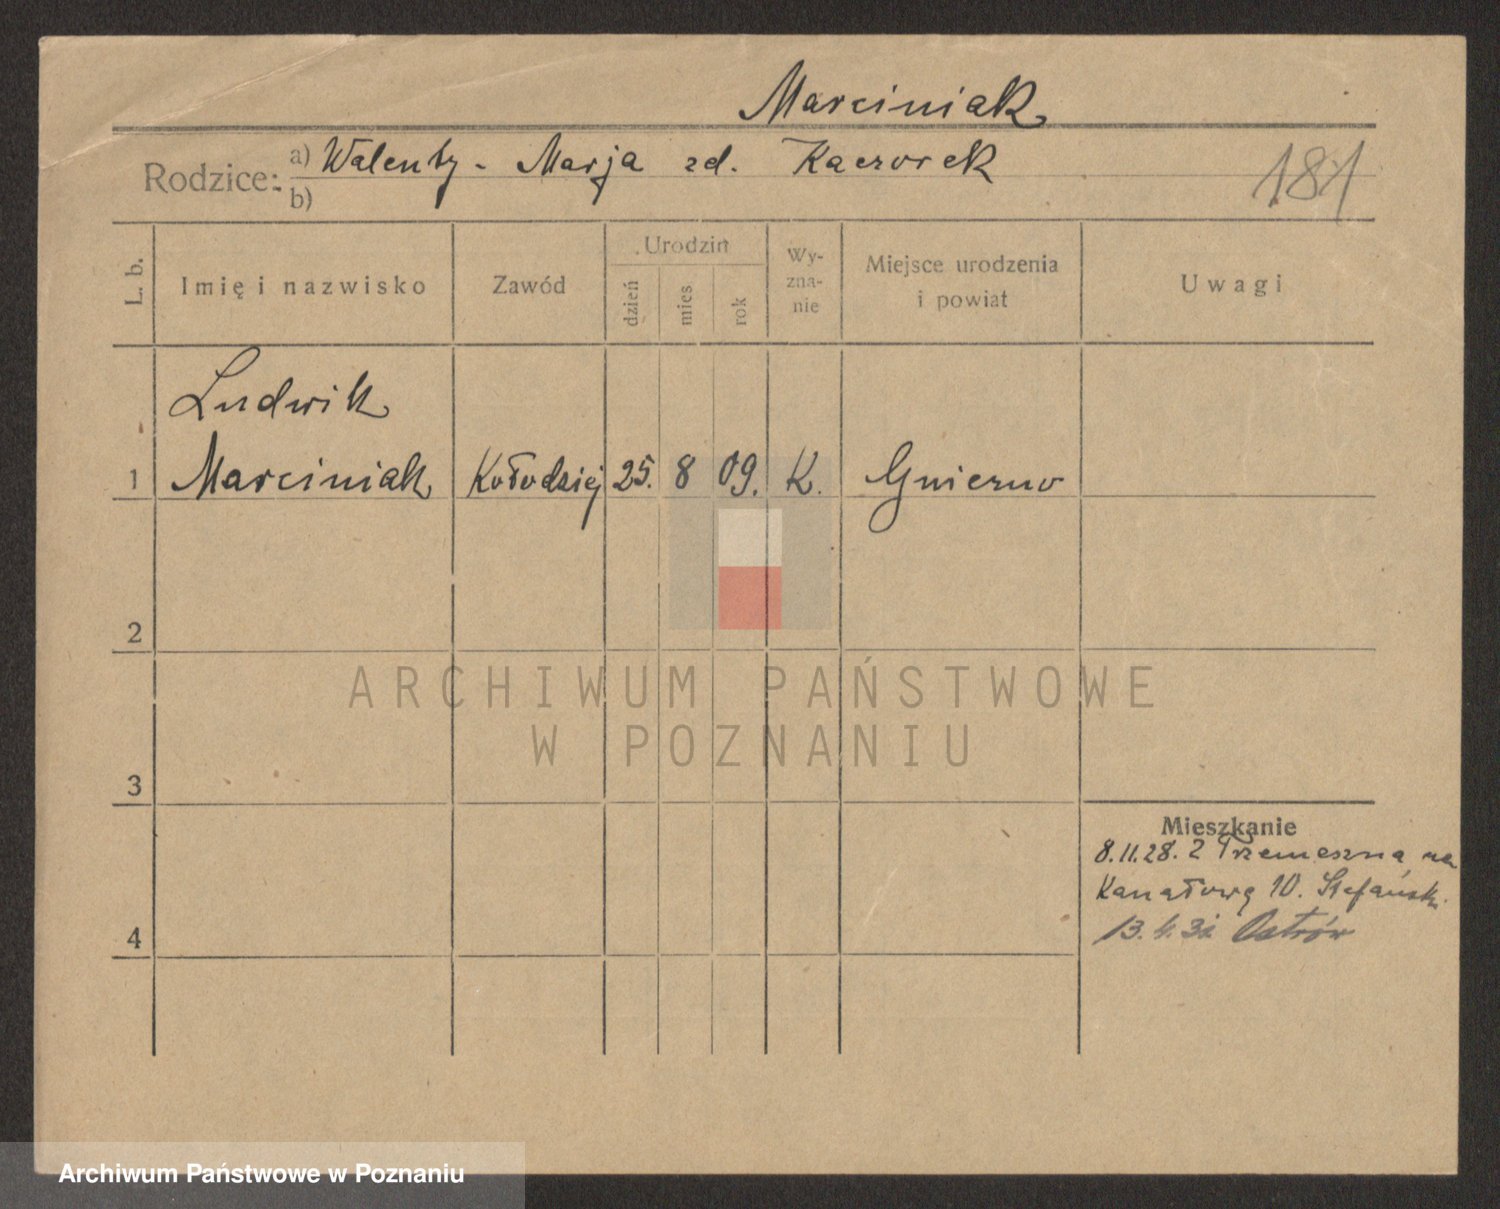 Marciniak
Rodzice: a) Walenty - Marja zd. Kaczorek
b)
181
L. b. Imię i nazwisko Zawód Urodzin dzień mies rok Wy-zna-nie Miejsce urodzenia i powiat Uwagi
Ludwik
1 Marciniak Kołodziej 25. 8 09. K. Gniezno
2
ARCHIWUM PAŃSTWOWE
W POZNANIU
3
Mieszkanie
8.11.28. z Trzemeszna na
Kanałową 10. Stefański
13.4. Ostrów
4
Archiwum Państwowe w Poznaniu